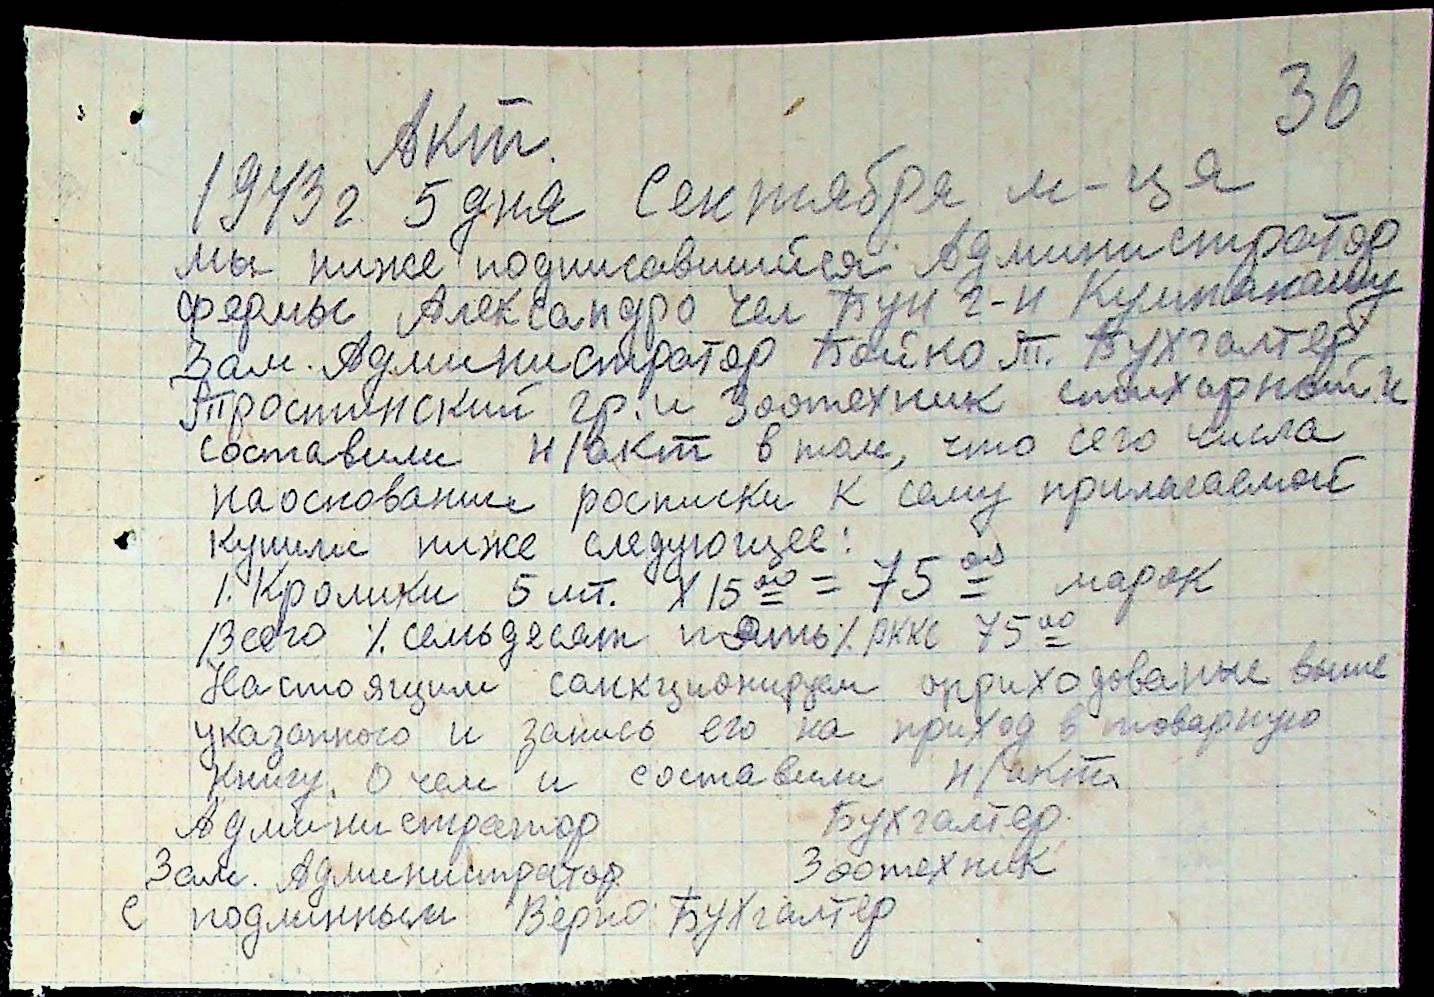 36
Акт.
1943 г. 5 дня Сентября м-ця
мы ниже подписавшийся Администратор
фермы Александро чел Бун г-н
Зам. Администратор Бойко Т. Бухгалтер
Тростинский гр. и Зоотехник
составили н/акт в том, что сего числа
наоснование росписки к сему прилагаемой
купили ниже следующее:
1. Кролики 5 шт. х 15 00 = 75 00 марок
Всего ٪ семьдесят пять ٪ рккс 75 00
Настоящим санкционируем оприходованые выше
указанного и запись его на приход в товарную
книгу. О чем и составили н/акт.
Администратор Бухгалтер.
Зам. Администратор Зоотехник
С подлинным Верно: Бухгалтер